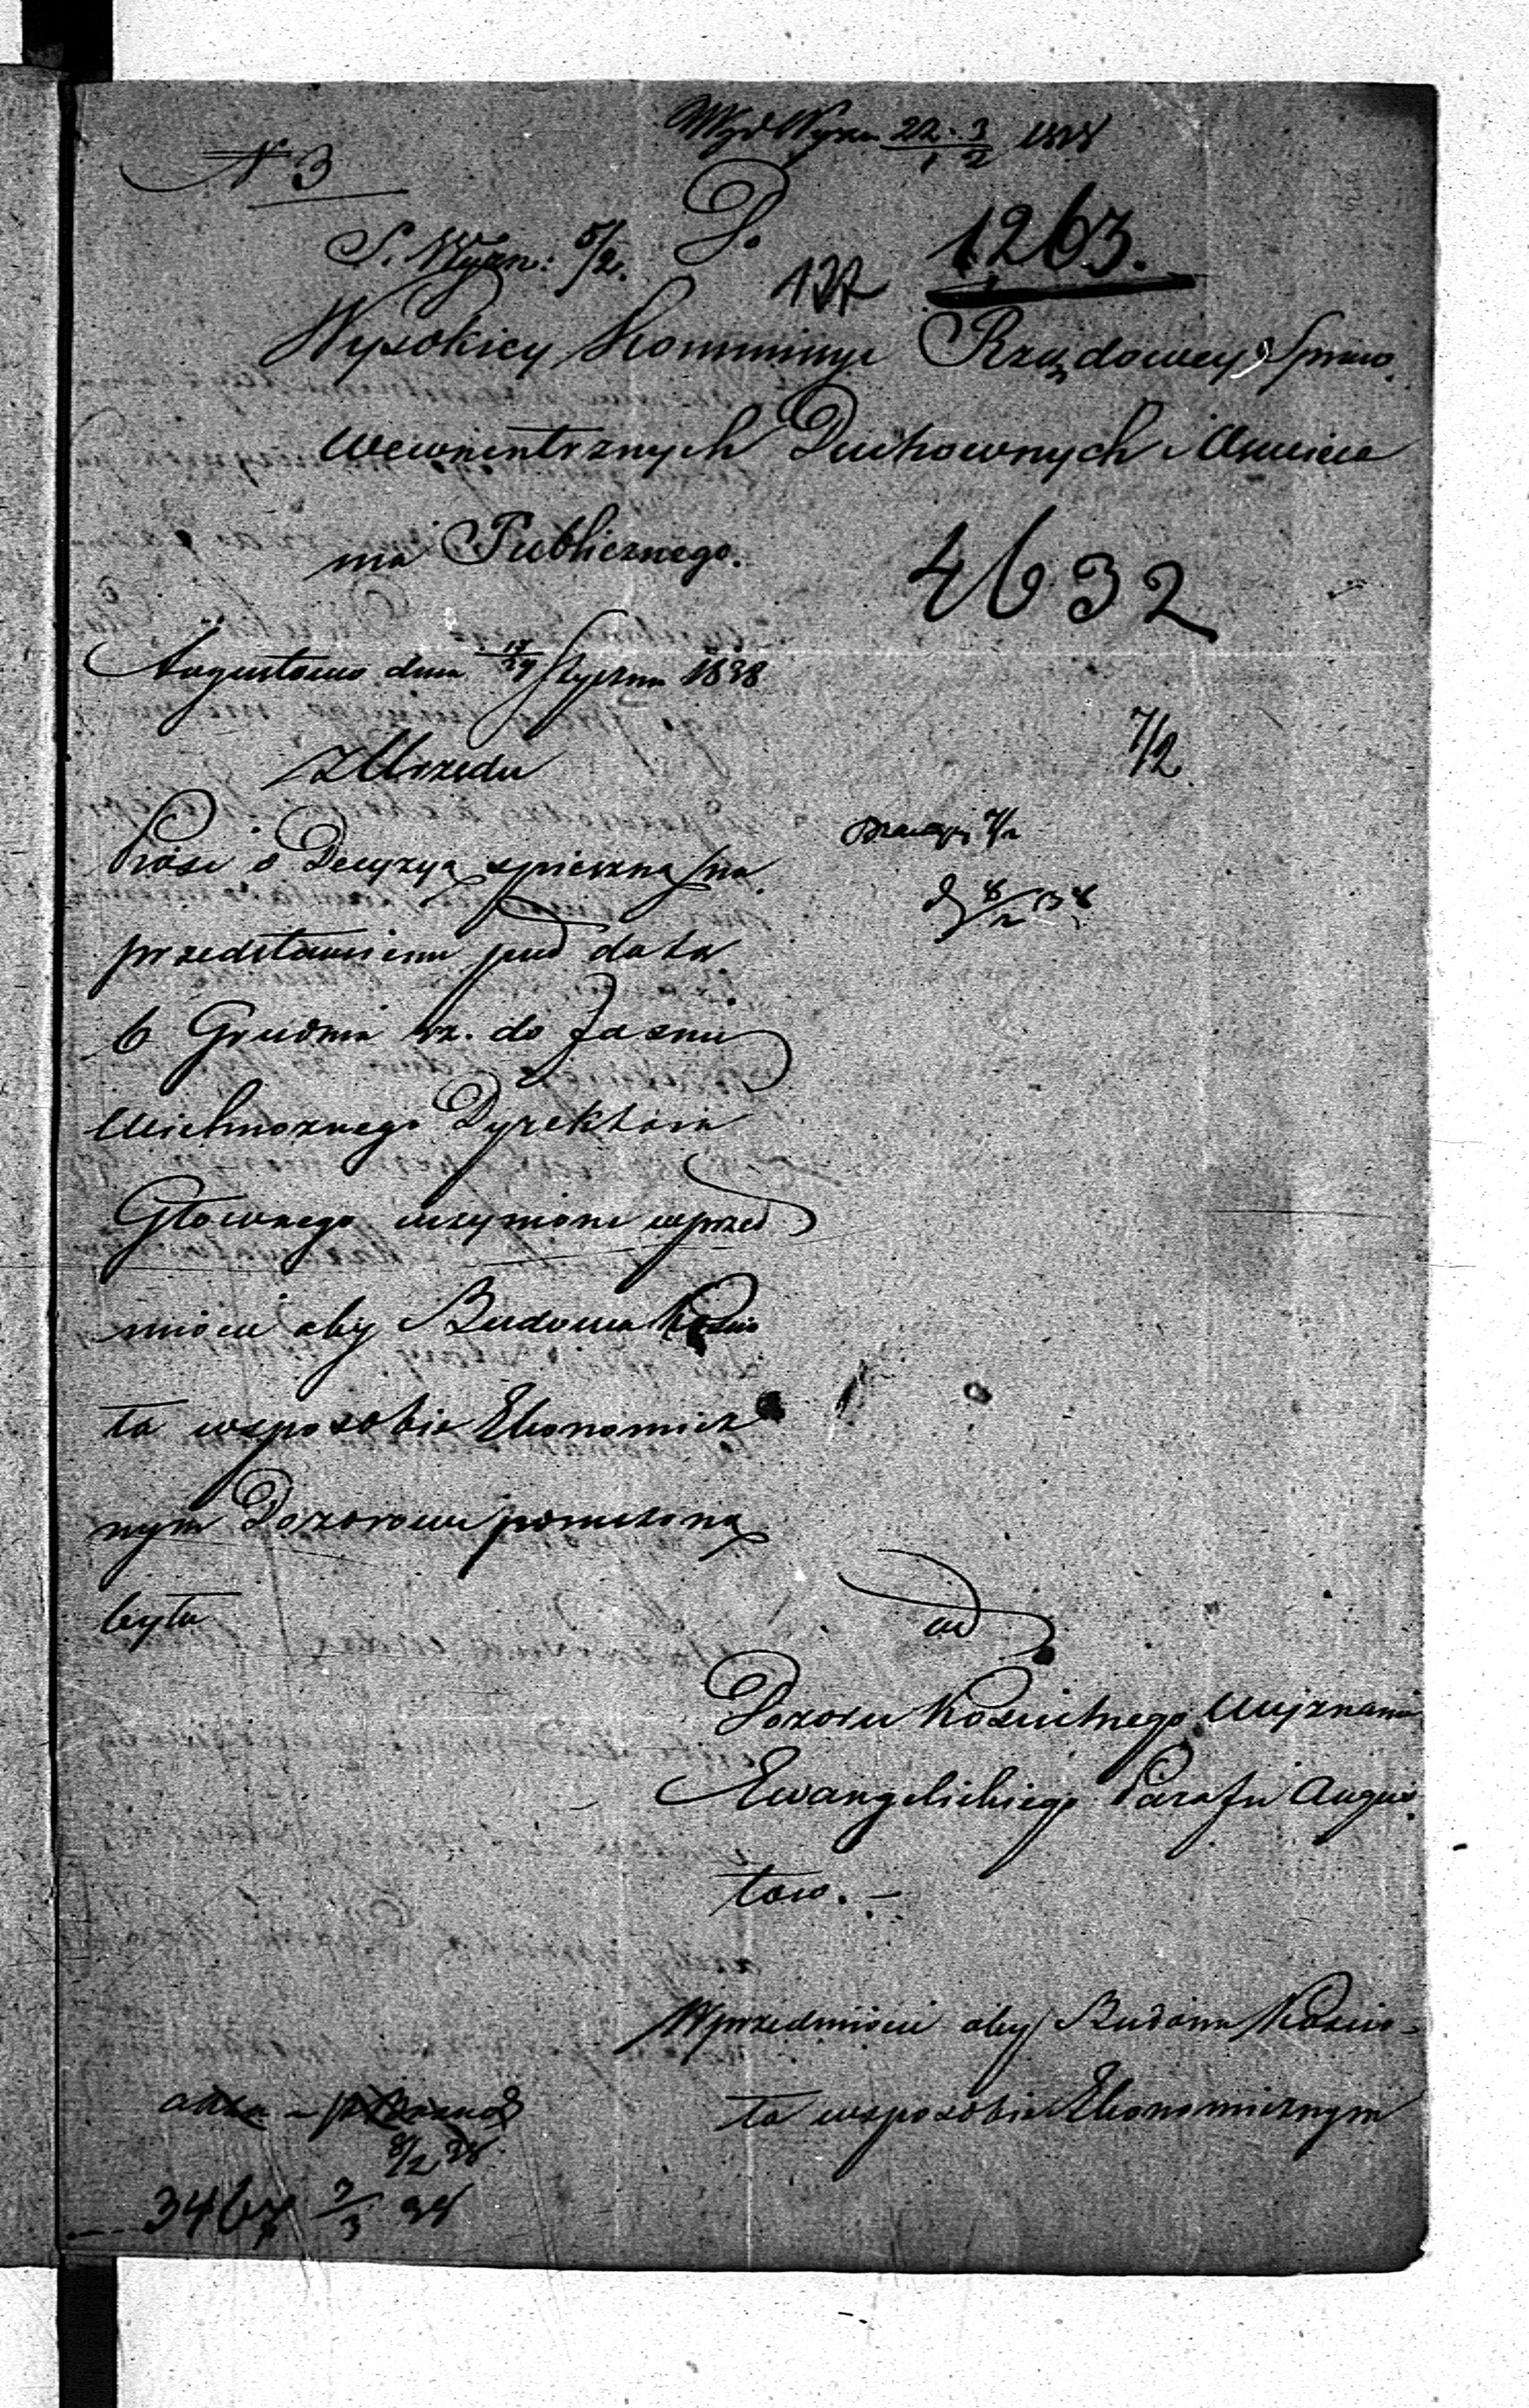 N 3
22. 3 1838
1 2
S. Wyzn: 5/2. D.
137 1263.
Wysokiey Kommissyi Rządowey Spraw
wewnentrznych Duchownych i Oswiece
nia Publicznego.
4632
Augustowo dnia 17/29 Stycznia 1838
7/2
z Urzedu
Prosi o Decyzyą spieszną na
8/2 38
przedstawienie pod datą
6 Grudnia rz. do Jasnie
Wielmożnego Dyrektora
Głownego uczynione wprzed
miocie aby Budowa Koscio
ła wsposobie Ekonomicz
nym Dozorowi poruczoną
była
od
Dozoru Koscielnego Wyznania
Ewangelickiego Parafii Augus
tow. –
Wprzedmiocie aby Budowa Koscio-
ła wsposobie Ekonomicznym
8/2 38.
3467 7/3 38